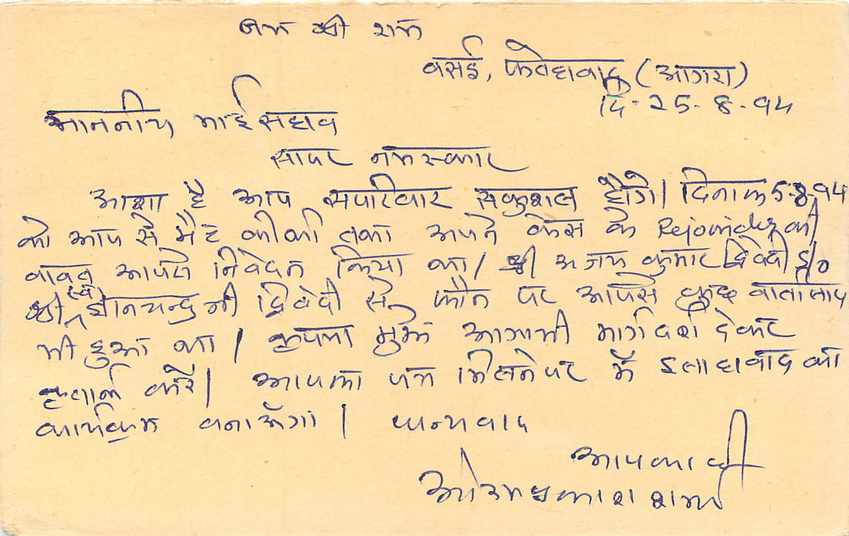 जय श्री राम
वसई, फतेहावाद (आगरा)
दि-25-8-94
माननीय भाई सहाव
सादर नमस्कार
आशा है आप सपरिवार सकुशल होंगे। दिनाक 5-8-94
को आप से भेंट की थी तथा अपने केस के Rejoinder की
वावत आपसे निवेदन किया था। श्री अजय कुमार द्विवेदी S/o
श्री ज्ञानचन्द्र जी द्विवेदी से फौन पर आपसे कुछ वार्तालाप
भी हुआ था। कृपया मुझे आगामी मार्गदर्शन देकर
कृतार्थ करें। आपका पत्र मिलने पर मैं इलाहावाद का
कार्यक्रम वनाऊँगा। धन्यवाद
आपका ही
ओमप्रकाश शर्मा